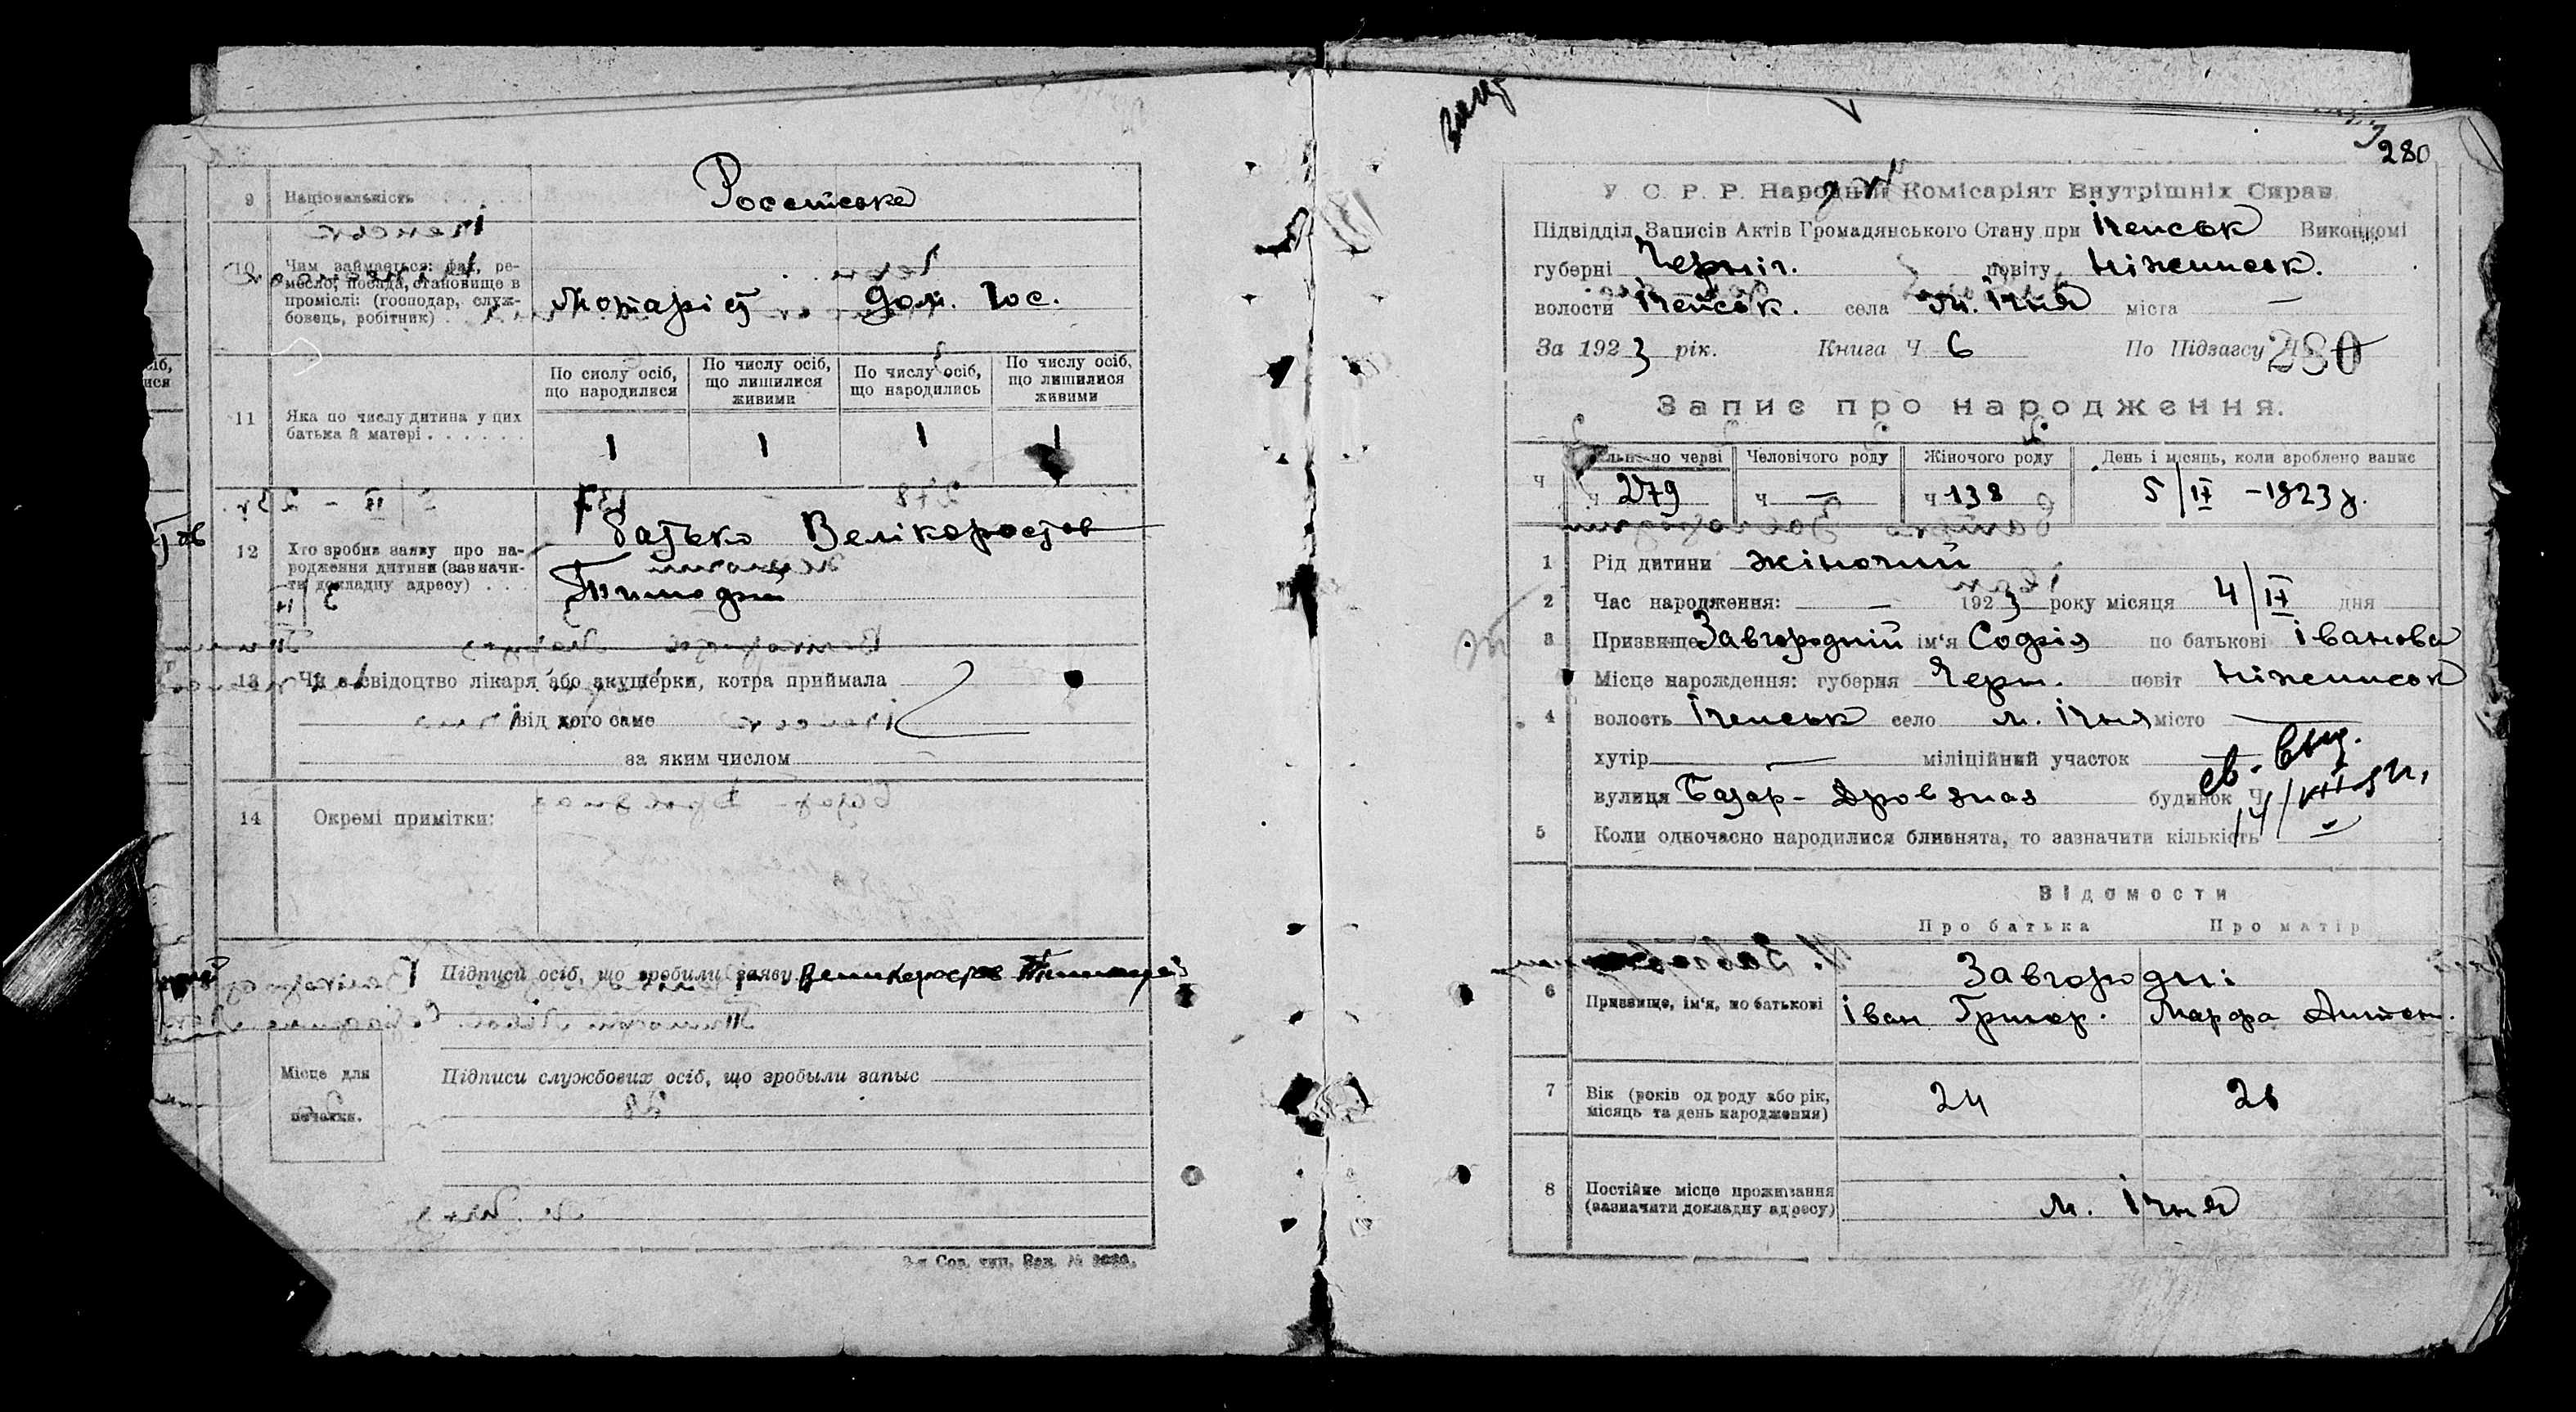 9 Національність Росєйська
10 Чим займається: фах, ре-
месло, посада, становище в
проміслі: (господар, служ-
бовець, робітник) Нотаріст дом. гос.
11 Яка по числу дитина у цих
батька й матері
По числу осіб, що народилися
По числу осіб, що лишилися живими
По числу осіб, що народились
По числу осіб, що лишилися живими
1 1 1 1
12 Хто зробив заяву про на-
родження дитини (зазначи-
ти докладну адресу)
батько Велікоростов
Тимофій
13 Чи є свідоцтво лікаря або акушерки, котра приймала
від кого саме
за яким числом
14 Окремі примітки:
Підписи осіб, що зробили заяву Великоростов
Місце для
печатки.
Підписи службових осіб, що зробыли запыс
280
У. С. Р. Р. Народній Комісаріят Внутрішніх Справ
Підвідділ Записів Актів Громадянського Стану при Іченськ Виконкомі
губерні Черніг. повіту Ніжинськ.
волости Іченськ. села м. Ічня міста —
За 1923 рік. Книга Ч 6 По Підзагсу Ч 280
Запис про народження.
Ч Человічого роду Жіночого роду День і місяць, коли зроблено запис
ч 279 ч — ч 138 5/IX -1923 р.
1 Рід дитини жіночий
2 Час народження: — 1923 року місяця 4/IX дня
3 Призвище Завгородній ім'я Софія по батькові Іванова
4 Місце народження: губерня Черн. повіт Ніжинськ
волость Іченськ село м. Ічня місто —
хутір — міліційний участок
вулиця Базар- Дровяная будинок Ч
5 Коли одночасно народилися близнята, то зазначити кількість
Відомости
Про батька Про матір
6 Призвище, ім'я, по батькові
Завгородні
Іван Григор. Марфа Антон.
7 Вік (років од роду або рік,
місяць та день народження) 24
8 Постійне місце проживання
(зазначити докладну адресу) м. Ічня